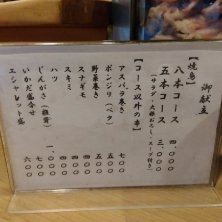 御献立
【焼鳥】
八本コース 四、〇〇〇
五本コース 三、〇〇〇
(サラダ・大根おろし・スープ付き)
【コース以外の串】
アスパラ巻き 七〇〇
ボンジリ(ペタ) 五〇〇
野菜巻き 五〇〇
スナギモ 四〇〇
スキミ 四〇〇
ハツ 四〇〇
じんがさ(椎茸)
いかだ盛合せ 一、〇〇〇
エシャレット盛 六〇〇